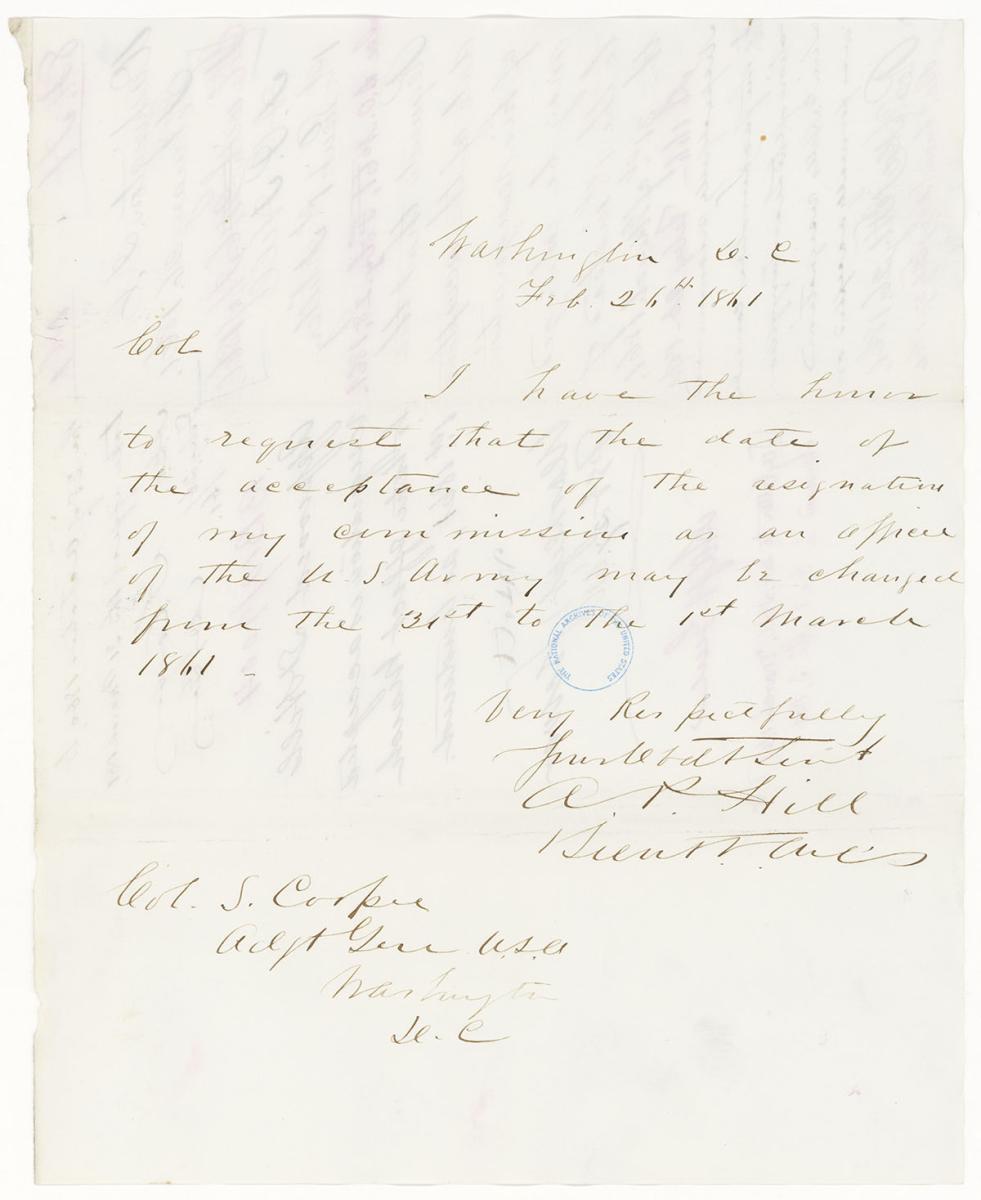 Washington D. C
Feb. 26th. 1861
Col
I have the honor
to request that the date of
the acceptance of the resignation
of my commission as an officer
of the U. S. Army may be changed
from the 31st to the 1st March
1861 -
THE NATIONAL ARCHIVES OF THE UNITED STATES
Very Respectfully
Your Obdt Servt
A. P. Hill
Lieut
Col. S. Cooper
Adjt Gen U.S.A
Washington
D. C